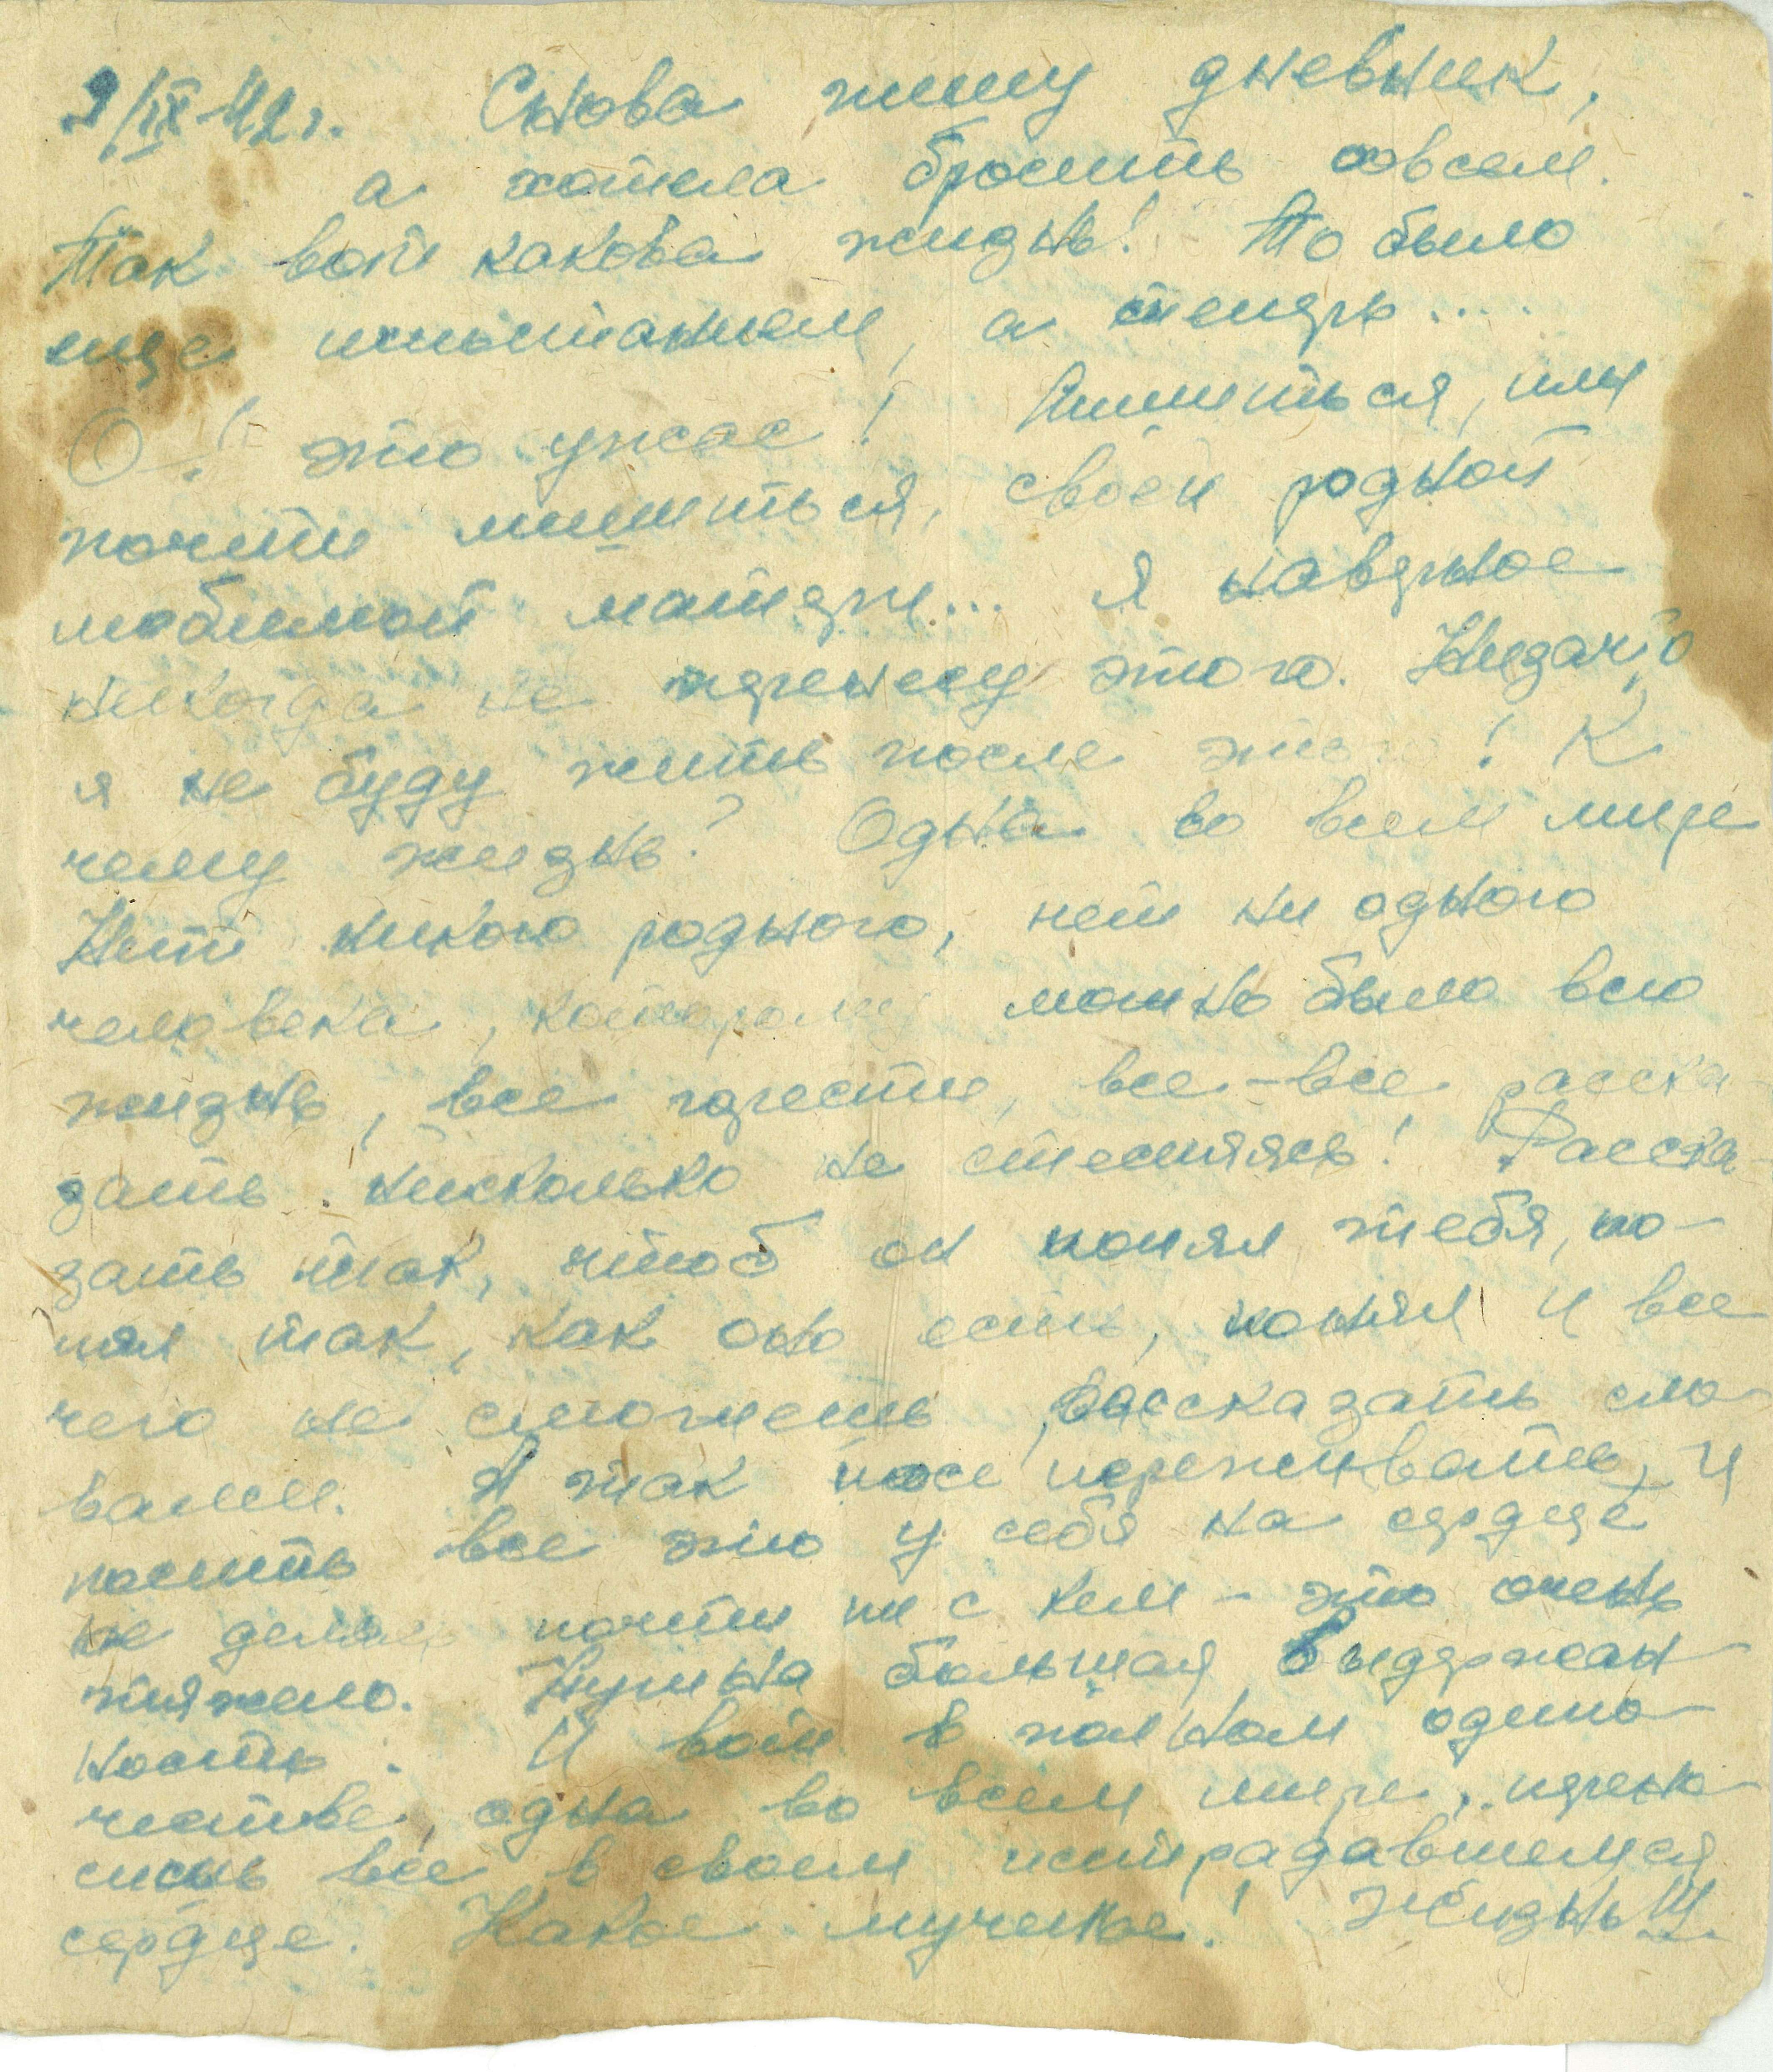 9/IX-42 г. Снова пишу дневник,
а хотела бросить совсем.
Так вот какова жизнь! То было
еще испытанием, а теперь.....
О! это ужас! Лишиться, или
почти лишиться, своей родной
любимой матери... Я наверное
никогда не перенесу этого. Низачто
я не буду жить после этого! К
чему жизнь? Одна во всем мире
Нет никого родного, нет ни одного
человека, которому можно было всю
жизнь, все горести, все-все расска-
зать нисколько не стесняясь! Расска-
зать так, чтоб он понял тебя, по-
нял так, как оно есть, понял и все
чего не сможешь рассказать сло-
вами. А так все переживать, и
носить все это у себя на сердце
не делясь почти ни с кем - это очень
тяжело. Нужна большая выдержан-
ность. И вот в полном одино-
честве, одна во всем мире, перено-
сишь все в своем исстрадавшемся
сердце. Какое мученье! Жизнь!!!